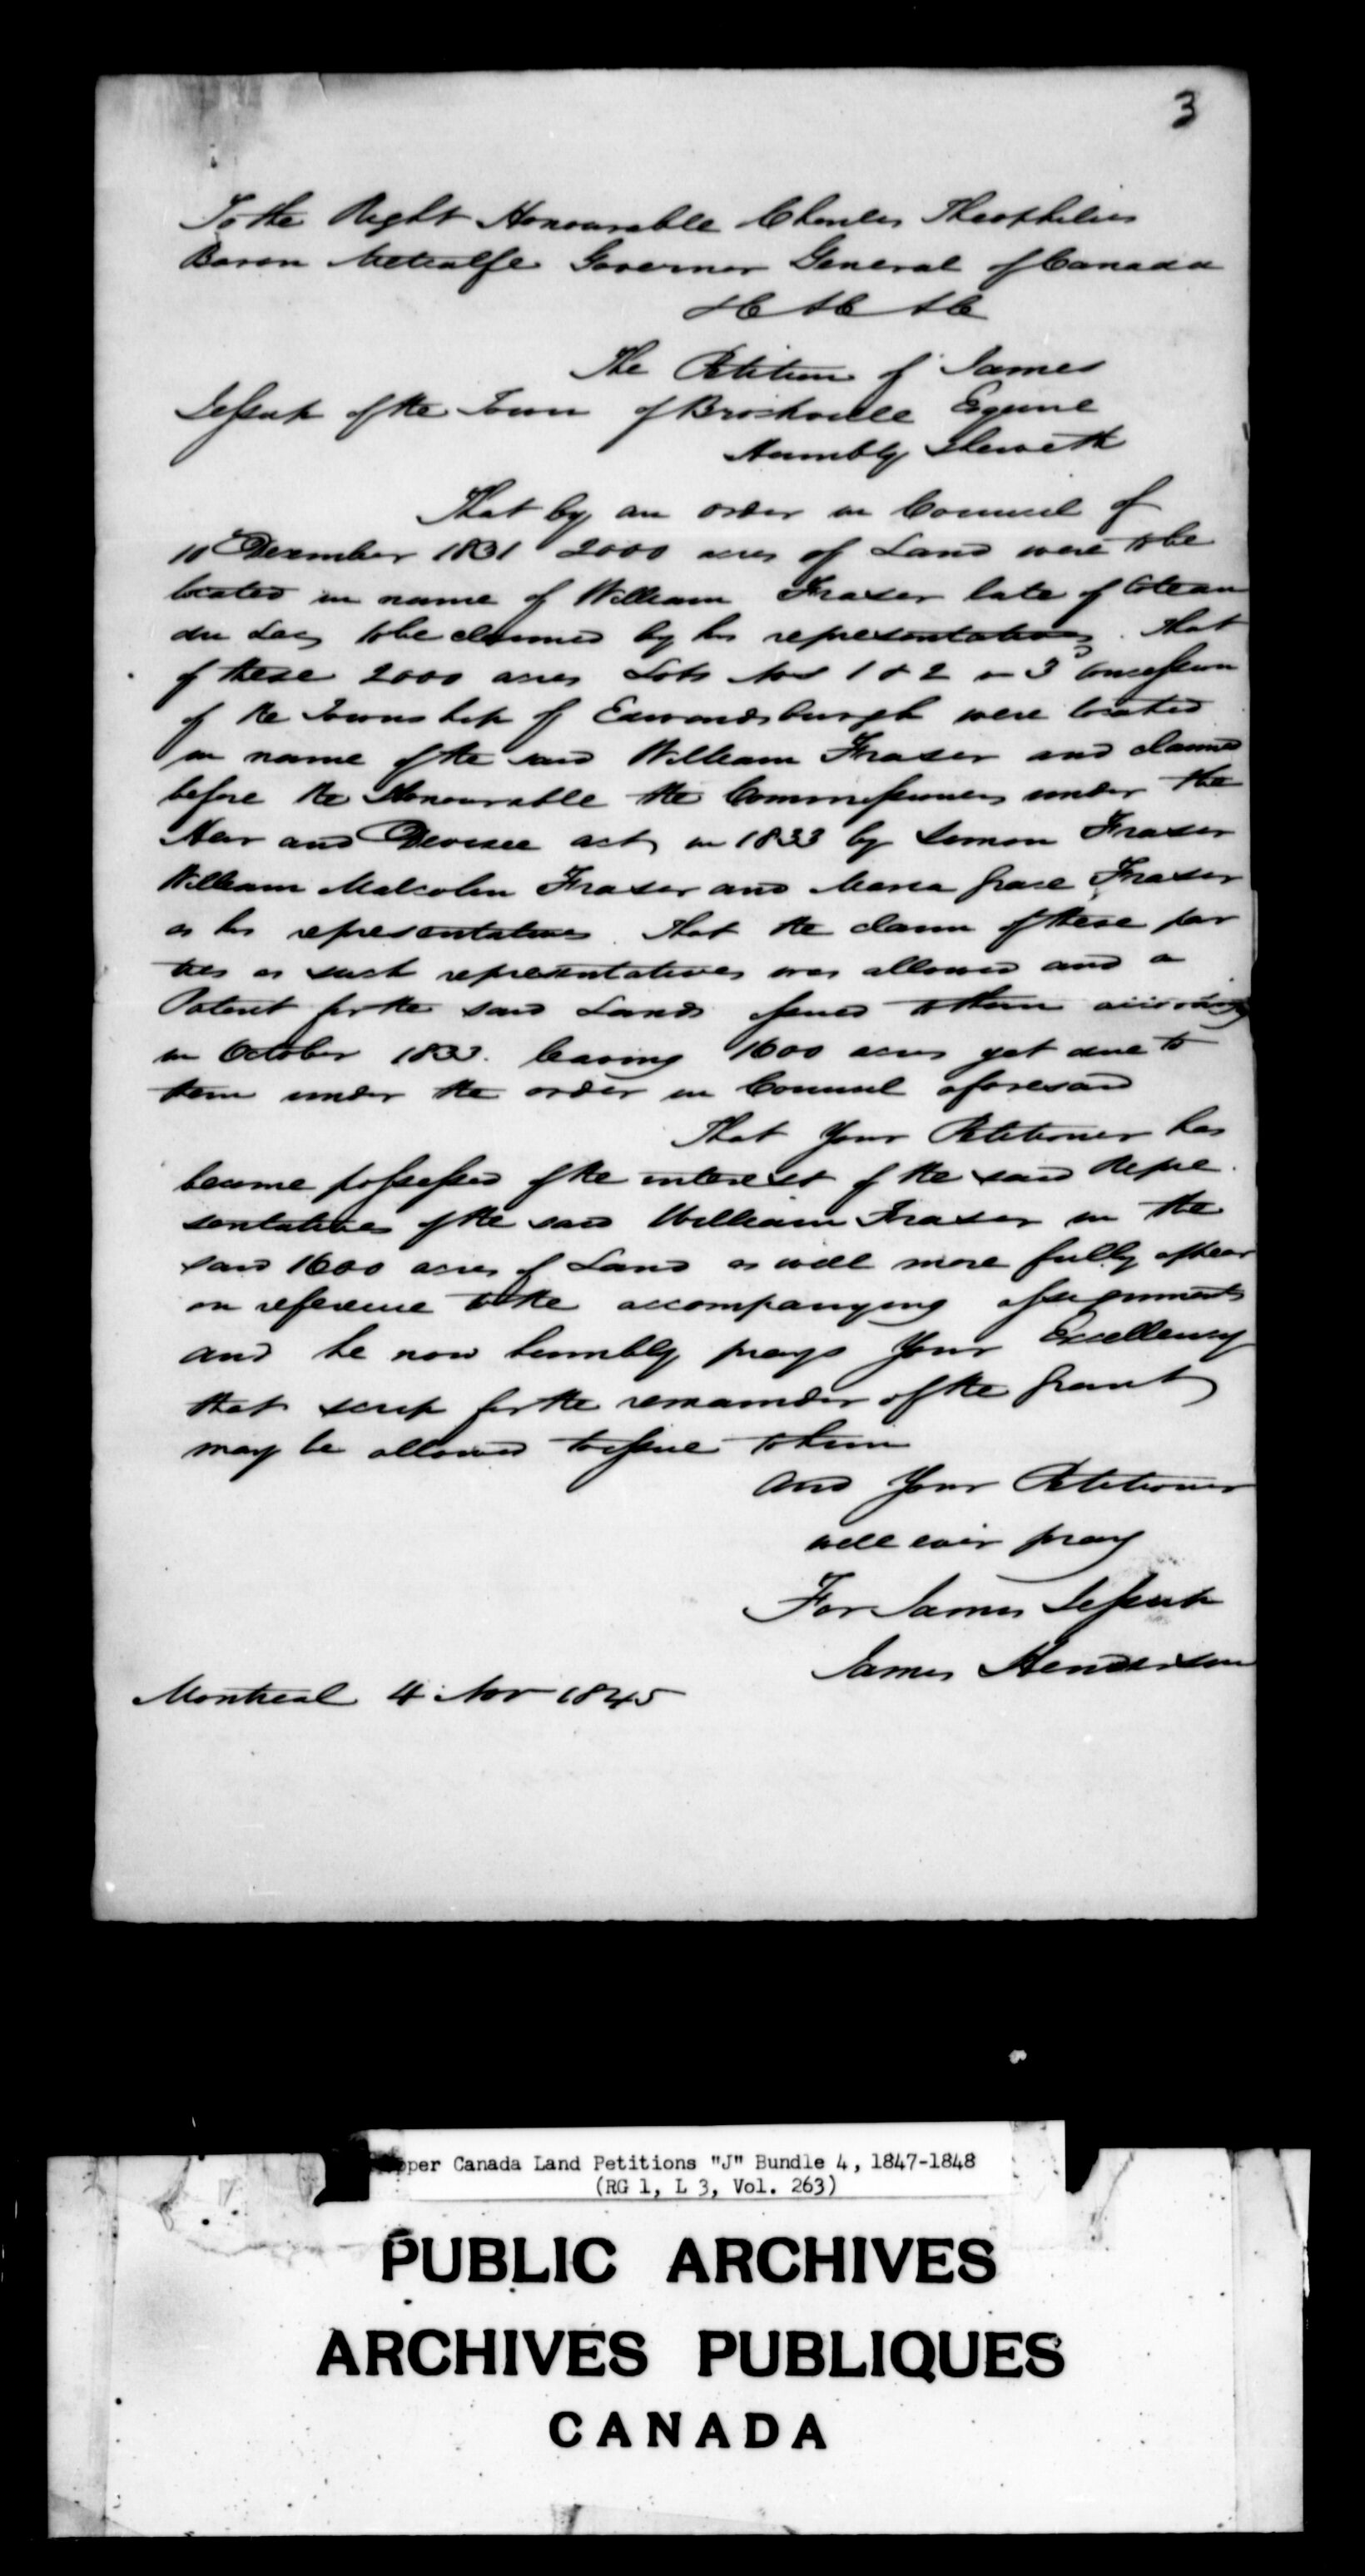 3
To the Right Honourable Charles Theophilus
Baron Metcalfe Governor General of Canada
&c &c &c
The Petition of James
Jessup of the Town of Brockville Esquire
Humbly Sheweth
That by an order in Council of
10 December 1831 2000 acres of Land were to be
located in name of William Fraser late of Coteau
du Lac to be claimed by his representatives. That
of these 2000 acres Lots Nos 1 & 2 in 3d Concession
of the Township of Edwardsburgh were located
in name of the said William Fraser and claimed
before the Honourable the Commissioners under the
Heir and Devisee act in 1833 by Simon Fraser
William Malcolm Fraser and Maria Grace Fraser
as his representatives. That the claim of these par
ties as such representatives was allowed and a
Patent for the said Lands issued to them accordingly
in October 1833. leaving 1600 acres yet due to
them under the order in Council aforesaid
That Your Petitioner has
become possessed of the interest of the said Repre
sentatives of the said William Fraser in the
said 1600 acres of Land as will more fully appear
on reference to the accompanying assignments
and he now humbly prays Your Excellency
that scrip for the remainder of the Grant
may be allowed to issue to him
And Your Petitioner
will ever pray
For James Jessup
James Henderson
Montreal 4 Nov 1845
pper Canada Land Petitions "J" Bundle 4, 1847-1848
(RG 1, L 3, Vol. 263)
PUBLIC ARCHIVES
ARCHIVES PUBLIQUES
CANADA